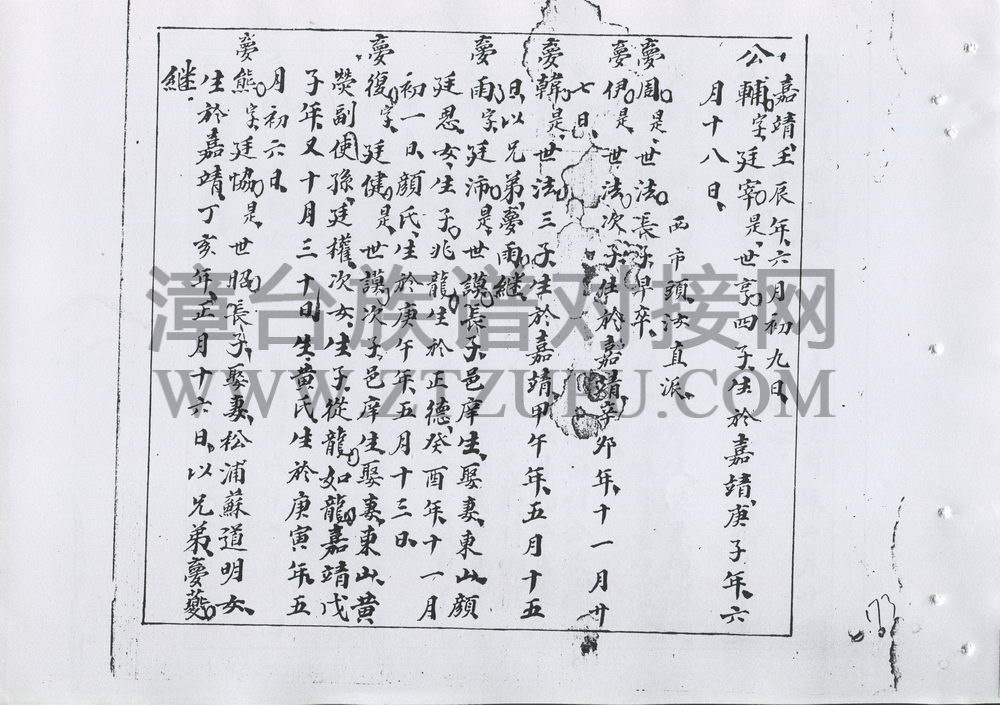 嘉靖壬辰年六月初九日
公輔字廷宰是世亨四子生於嘉靖庚子年六
月十八日
西市頭汝直派
夢周是世法長子早卒
夢伊是世法次子生於嘉靖辛卯年十一月廿
七日
夢韓是世法三子生於嘉靖甲午年五月十五
日以兄弟夢雨繼
夢雨字廷沛是世謨長子邑庠生娶妻東山顏
廷恩女生子兆龍生於正德癸酉年十一月
初一日顏氏生於庚午年五月十三日
夢復字廷健是世謨次子邑庠生娶妻東山黃
熒副使孫廷權次女生子從龍如龍嘉靖戊
子年又十月三十日生黃氏生於庚寅年五
月初六日
夢熊字廷協是世昭長子娶妻松浦蘇道明女
生於嘉靖丁亥年正月十六日以兄弟夢夔
继
漳台族谱对接网
WWW.ZTZUPU.COM